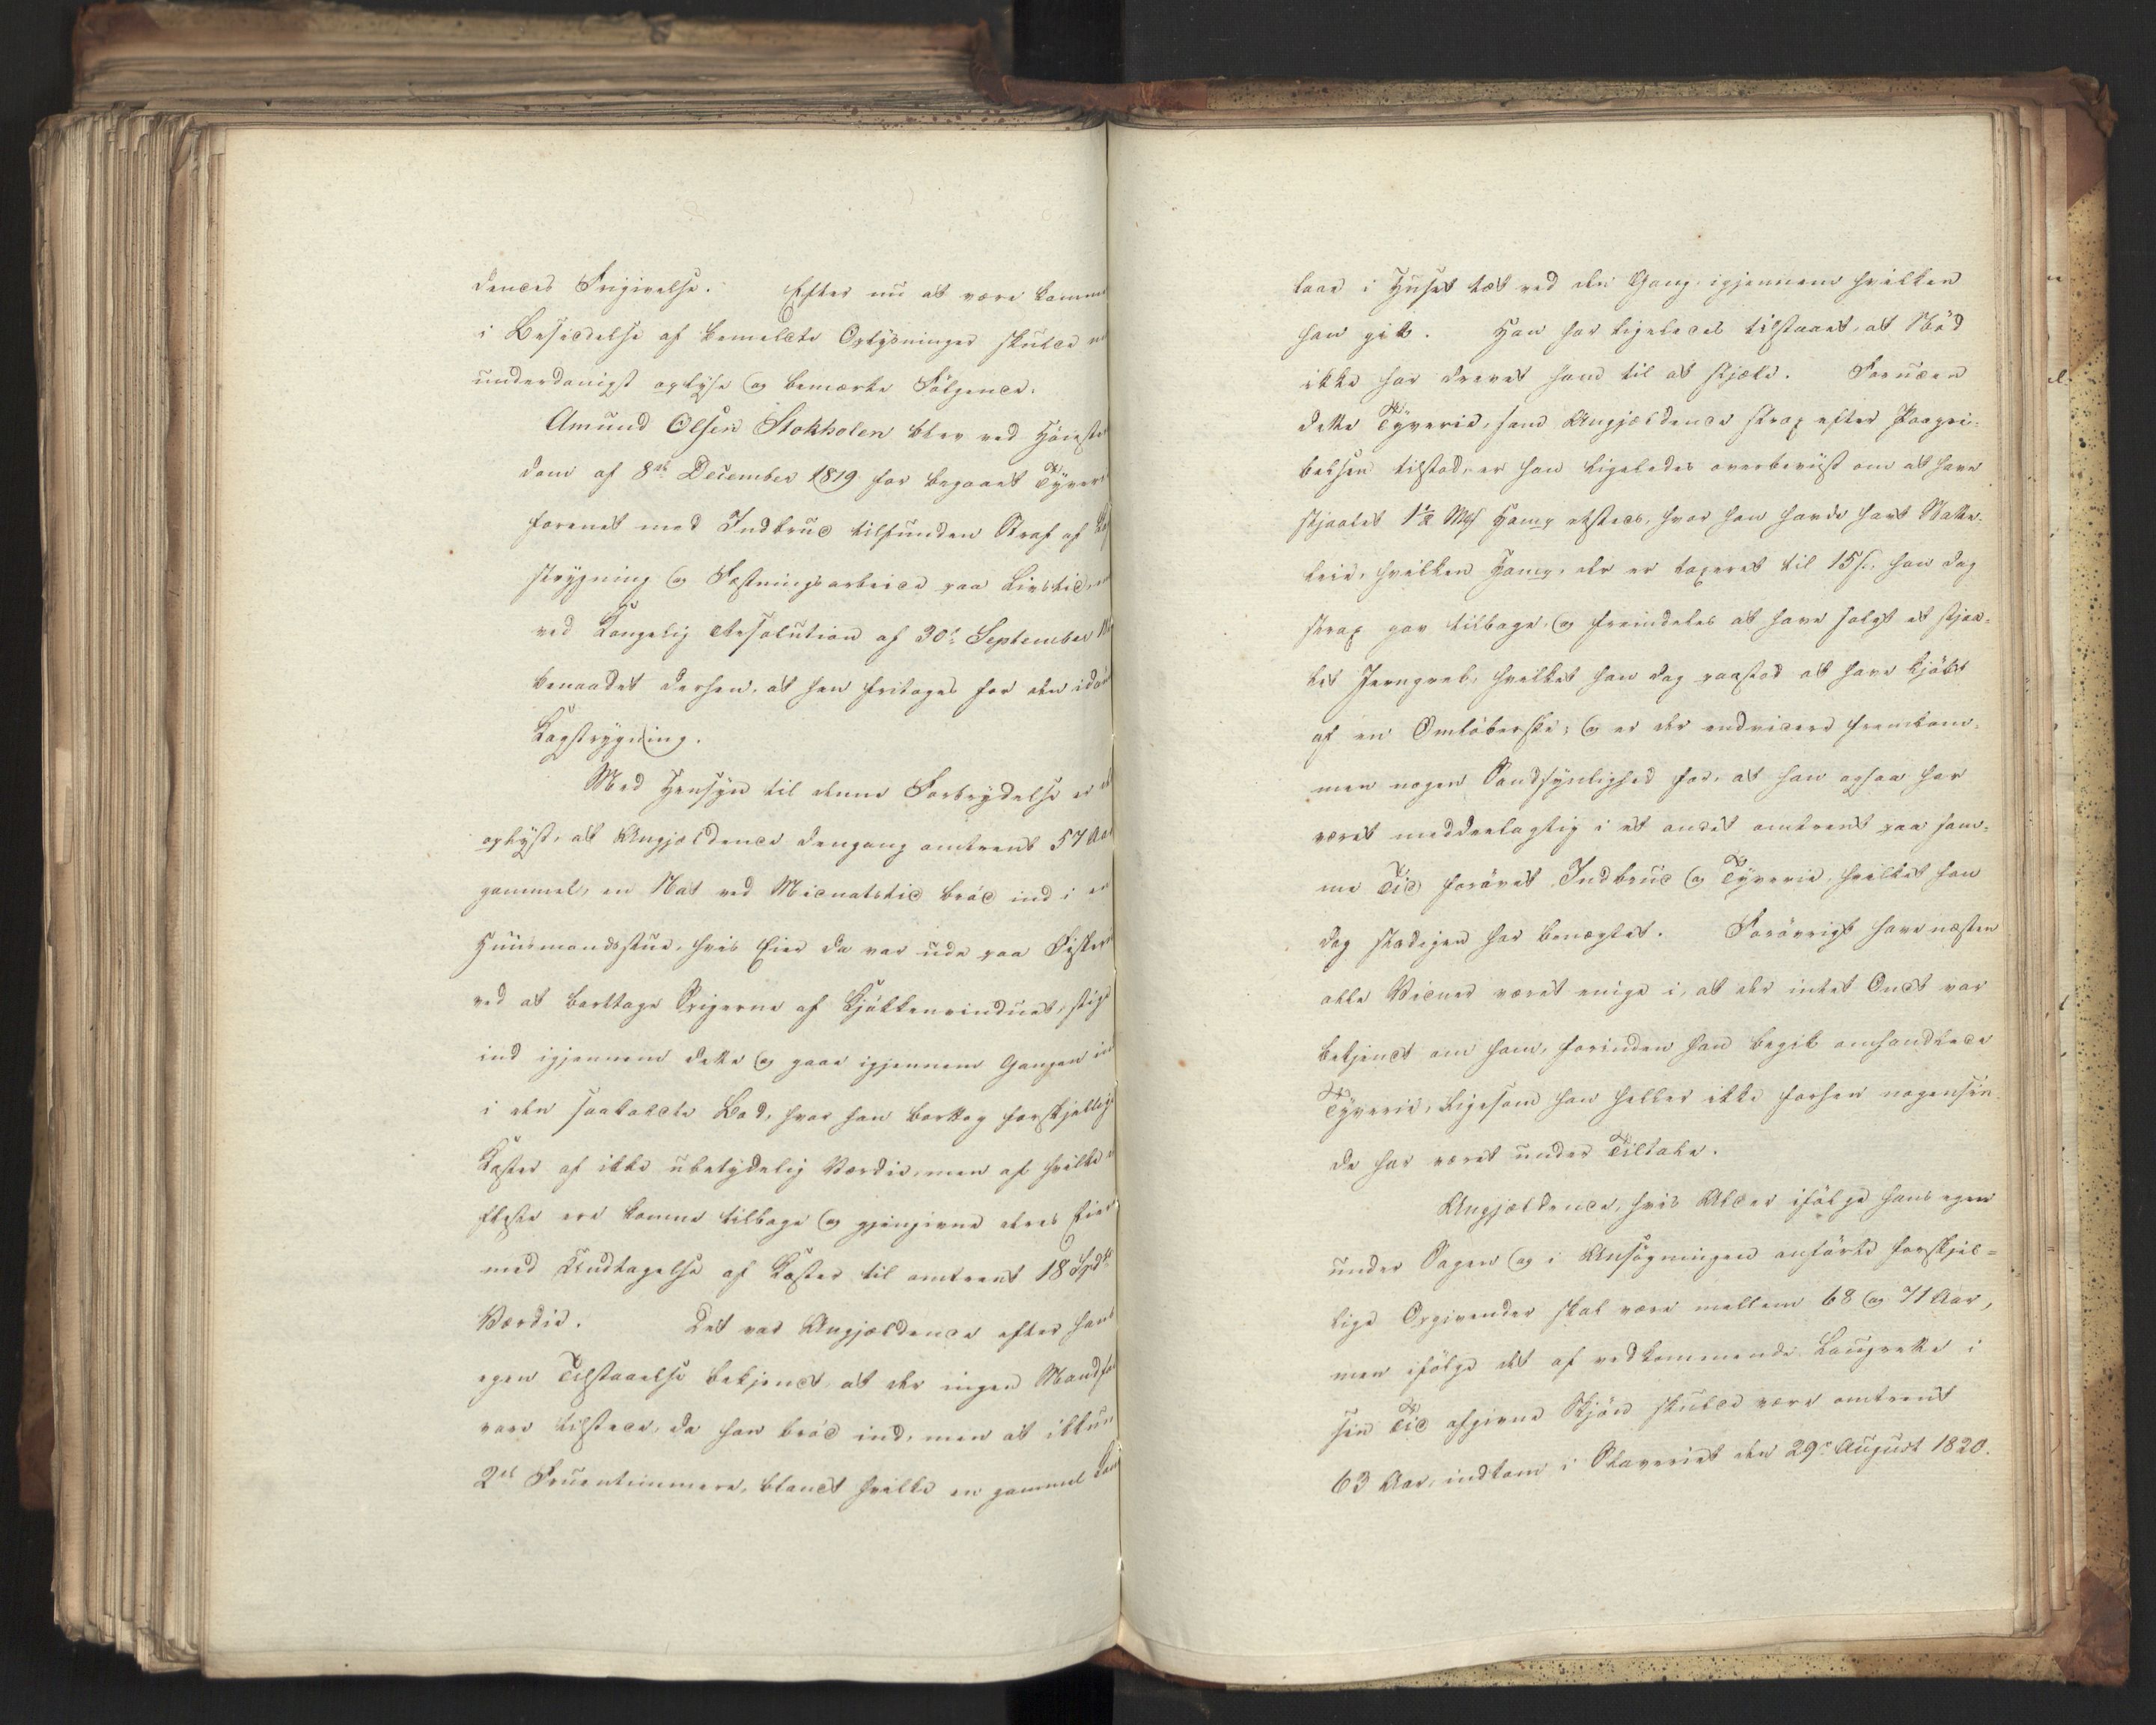 dendes Frigivelse. Efter nu at være komme
i Besiddelse af bemeldte Oplysninger skulde
underdanigst oplyse og bemærke Følgende:
Amund Olsen Stokholen blev ved Høieste
dom af 8de December 1819 for begaaet Tyverie
forenet med Indbrud tilfunden Straf af
strygning og Fæstningsarbeide paa Livstid,
ved Kongelig Resolution af 30te September
benaadet derhen, at han fritages for den idømte
Kagstrygning.
Med Hensyn til denne Forbrydelse er
oplyst, at Angjældende dengang omtrent 57 Aar
gammel, en Nat ved Midnatstid brød ind i en
Huusmandsstue, hvis Eier da var ude paa Fiskerie
ved at borttage Sprigerne af Kjøkkenvinduet, stige
ind igjennem dette og gaae igjennem Gangen ind
i den saakaldte Bod, hvor han borttog forskjellige
Koster af ikke ubetydelig Værdie, men af hvilke
fleste ere komne tilbage og gjengivne deres Eier
med Undtagelse af Koster til omtrent 18 Spd
Værdie. Det var Angjældende efter hans
egen Tilstaaelse bekjendt, at der ingen Mandfolk
vare tilstede, da han brød ind, men at ikkun
2de Fruentimmere, blandt hvilke en gammel Kone
laae i Huset tæt ved den Gang, igjennem hvilken
han gik. Han har ligeledes tilstaaet, at Nød
ikke har drevet ham til at stjæle. Foruden
dette Tyverie, som Angjældende strax efter Paagri-
belsen tilstod, er han ligeledes overbeviist om at have
stjaalet 1½ Mk Hamp etsteds, hvor han havde havt Natte-
leie, hvilken Hamp, der er taxeret til 15 s, han dog
strax gav tilbage, og fremdeles at have solgt et stjaa-
let Jerngreb, hvilket han dog paastod at have kjøbt
af en Omløberske; og er der endvidere fremkom-
men nogen Sandsynlighed for, at han ogsaa har
været meddeelagtig i et andet omtrent paa sam-
me Tid forøvet Indbrud og Tyverie, hvilket han
dog stedigen har benægtet. Forøvrigt have næsten
alle Vidner været enige i, at der intet Ondt var
bekjendt om ham, forinden han begik omhandlede
Tyverie, ligesom han heller ikke forhen nogensin-
de har været under Tiltale.
Angjældende, hvis Alder ifølge hans egen
under Sagen og i Ansøgningen anførte forskjel-
lige Opgivender skal være mellem 68 og 71 Aar,
men ifølge det af vedkommende Laugrette i
sin Tid afgivne Skjøn skulde være omtrent
63 Aar, indkom i Slaveriet den 29de August 1820.